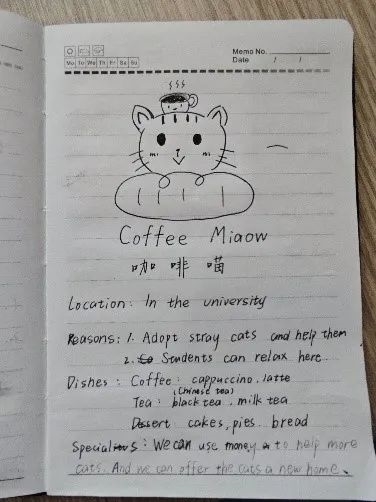 Memo No.
Mo Tu We Th Fr Sa Su
Date / /
Coffee Miaow
咖啡喵
Location: In the university
Reasons: 1. Adopt stray cats and help them
2. Students can relax here.
Dishes: Coffee: cappuccino, latte
(Chinese tea)
Tea: black tea, milk tea
Desert cakes, pies... bread
Specials: We can use money to help more
cats. And we can offer the cats a new home.